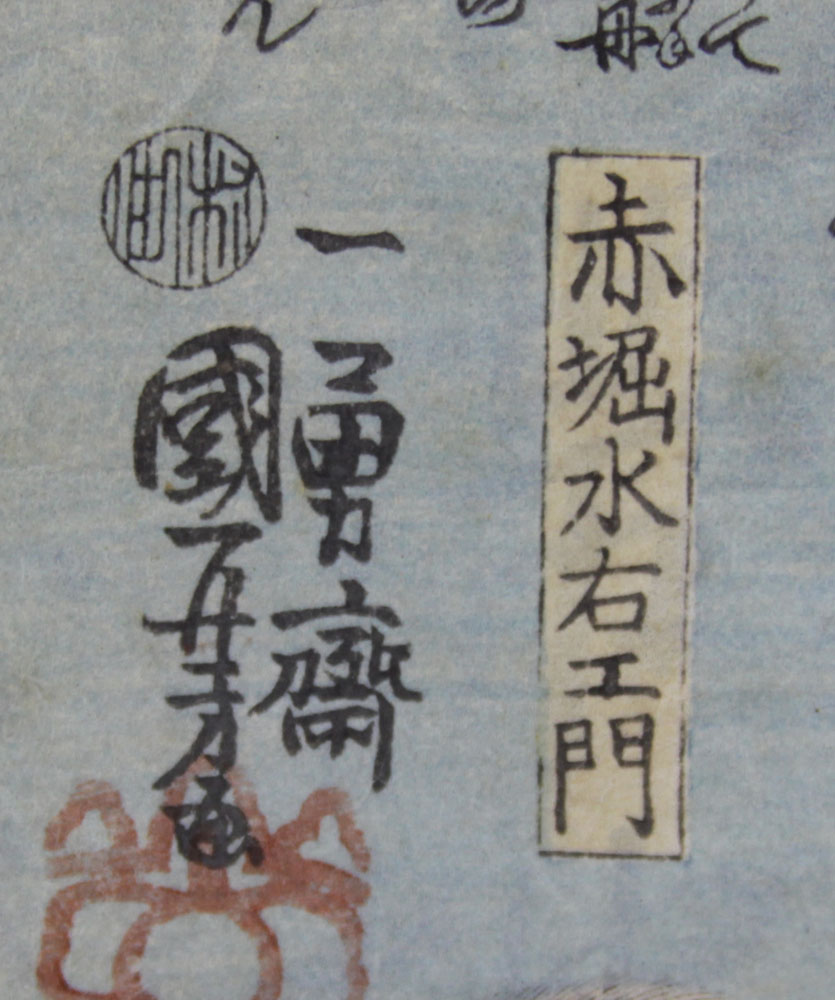 赤堀水右エ門
一勇齋
國芳画
村田